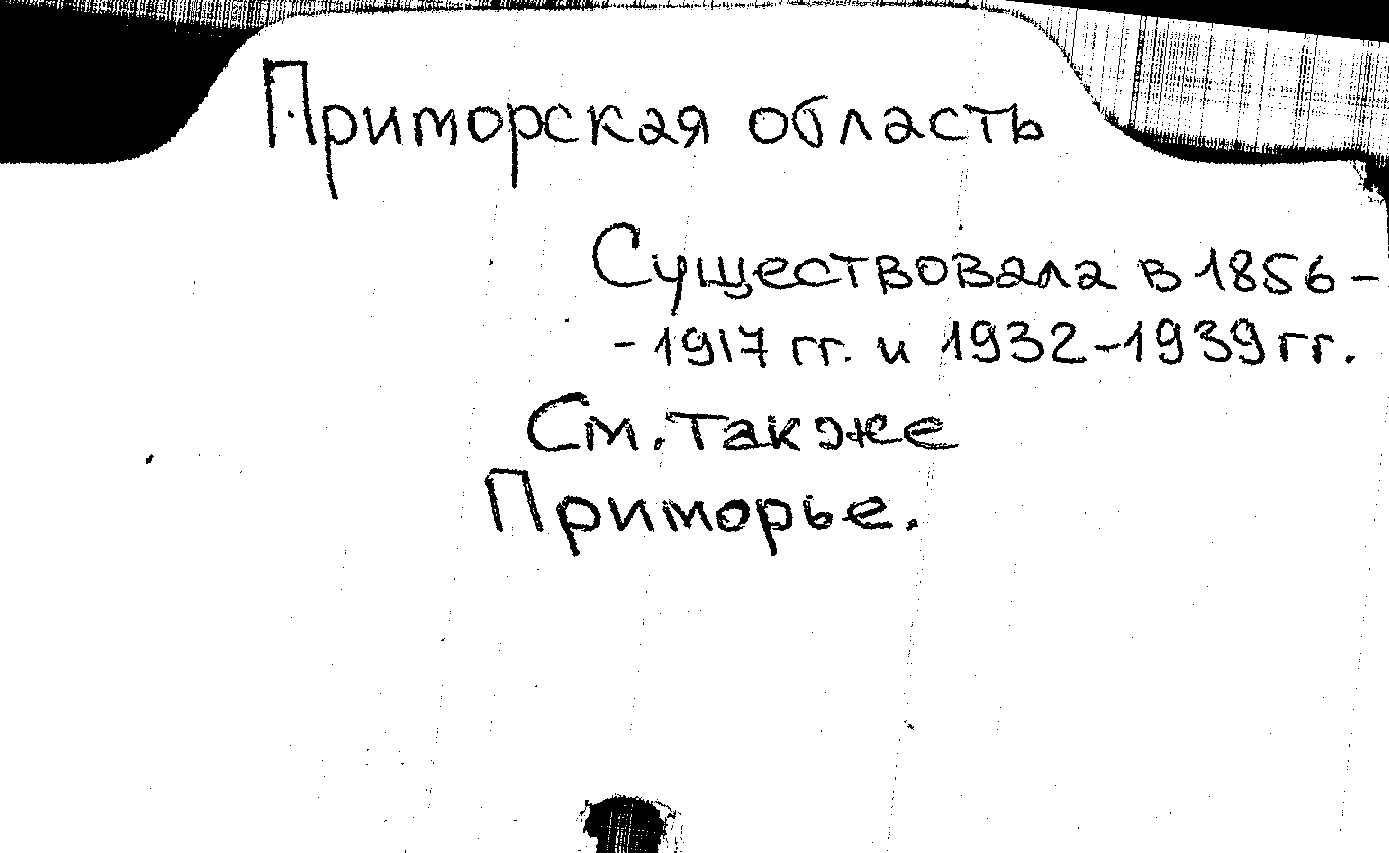 Приморская область
Существовала в 1856-
-1917 гг. и 1932-1939 гг.
См. также
Приморье.